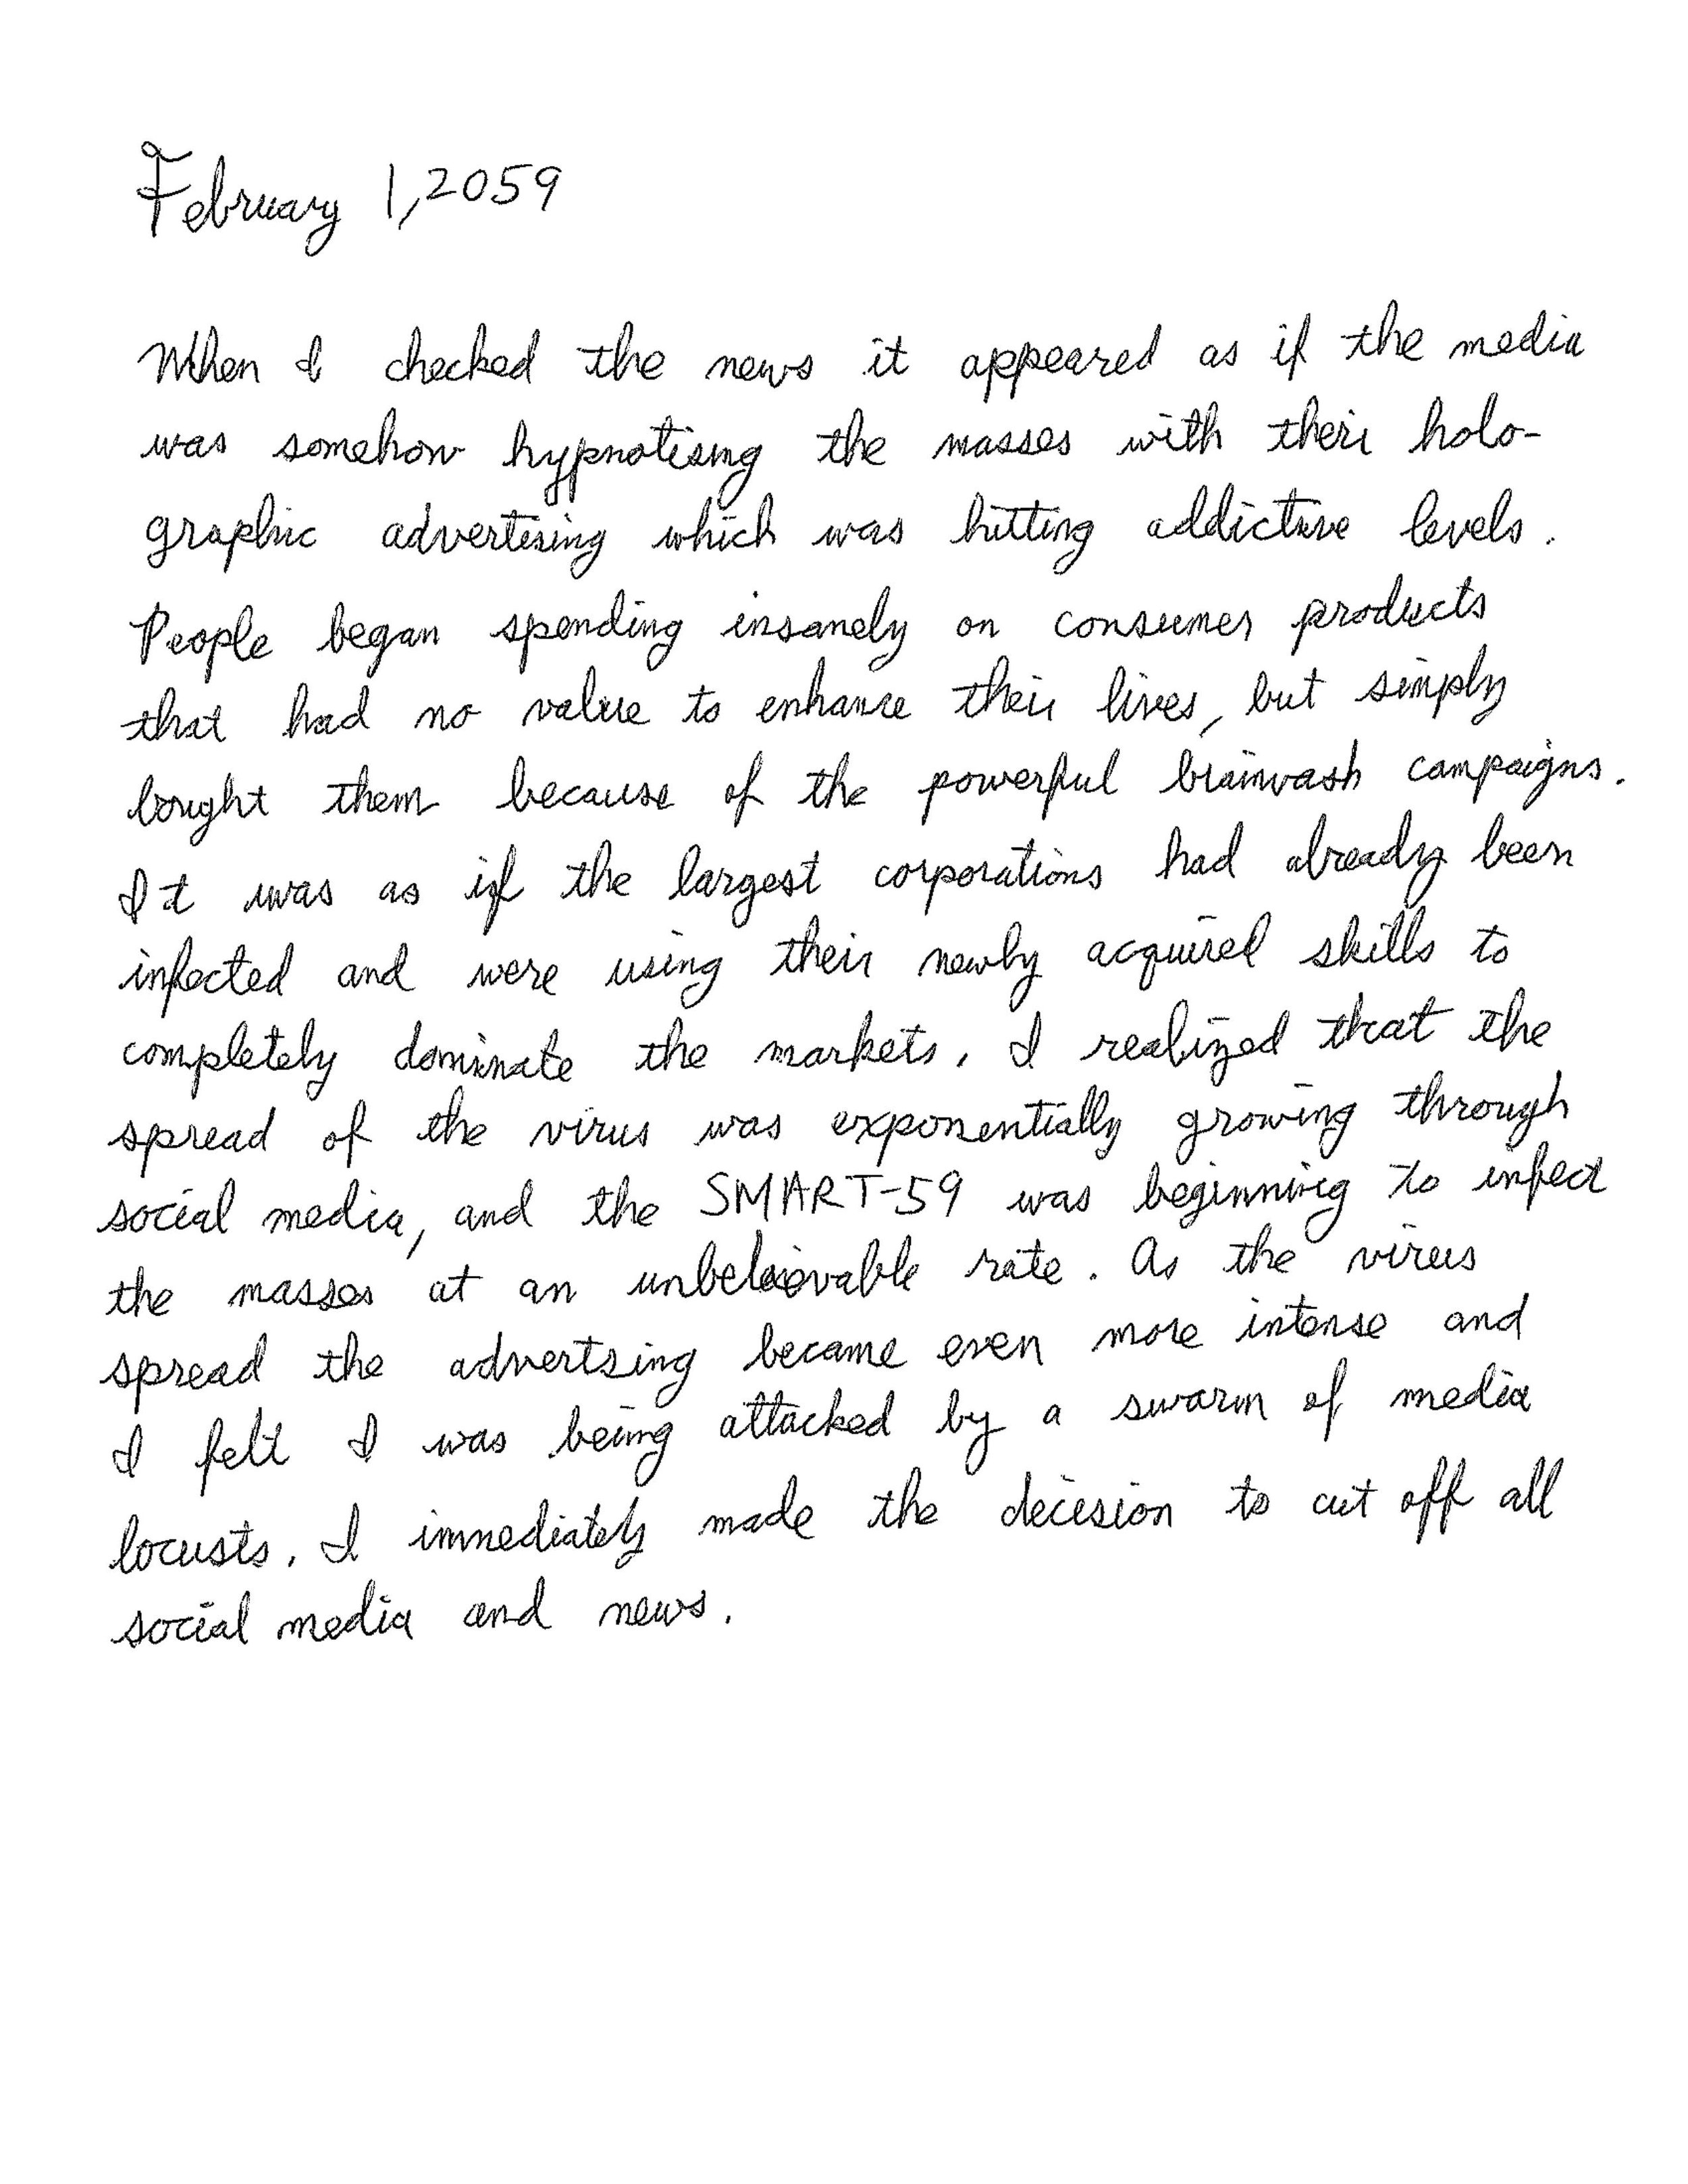 February 1, 2059
When I checked the news it appeared as if the media
was somehow hypnotising the masses with their holo-
graphic advertising which was hitting addictive levels.
People began spending insanely on consumer products
that had no value to enhance their lives, but simply
bought them because of the powerful brainwash campaigns.
It was as if the largest corporations had already been
infected and were using their newly acquired skills to
completely dominate the markets. I realized that the
spread of the virus was exponentially growing through
social media, and the SMART-59 was beginning to infect
the masses at an unbelievable rate. As the virus
spread the advertsing became even more intense and
I felt I was being attacked by a swarm of media
locusts. I immediately made the decision to cut off all
social media and news.